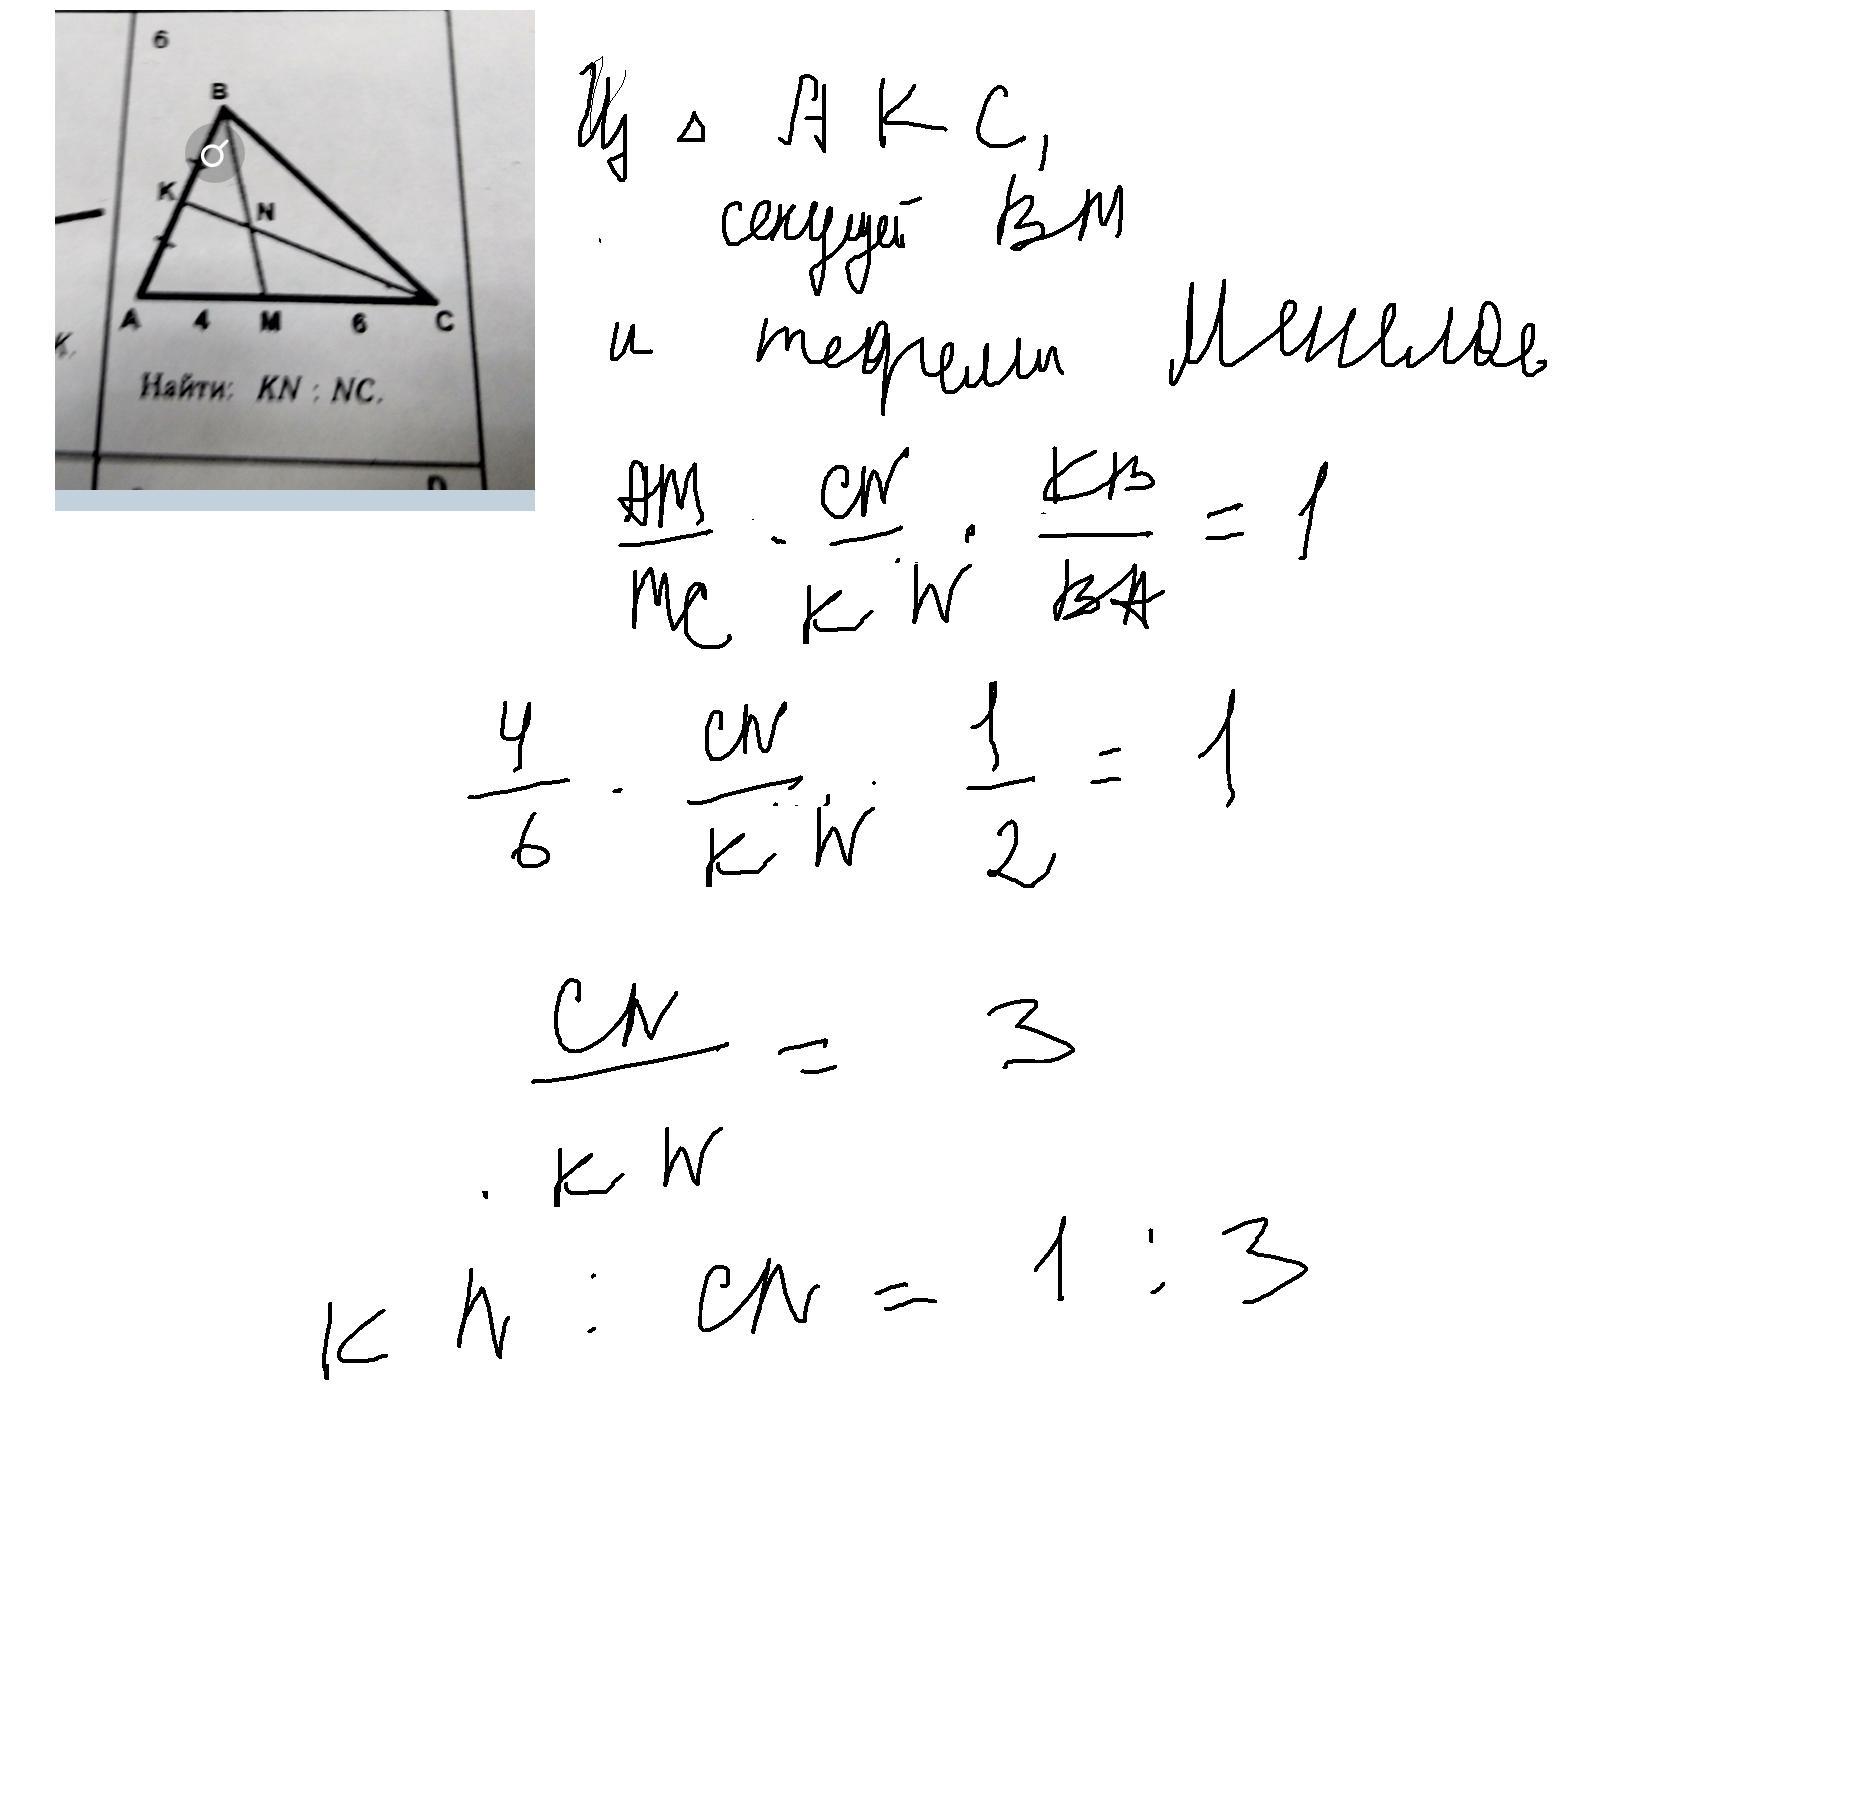 6
B
K
N
A 4 M 6 C
K.
Найти: KN : NC.
D
Из △ AKC,
секущей BM
и теоремы Менелая
AM/MC · CN/KN · KB/BA = 1
4/6 · CN/KN · 1/2 = 1
CN/KN = 3
KN : CN = 1 : 3